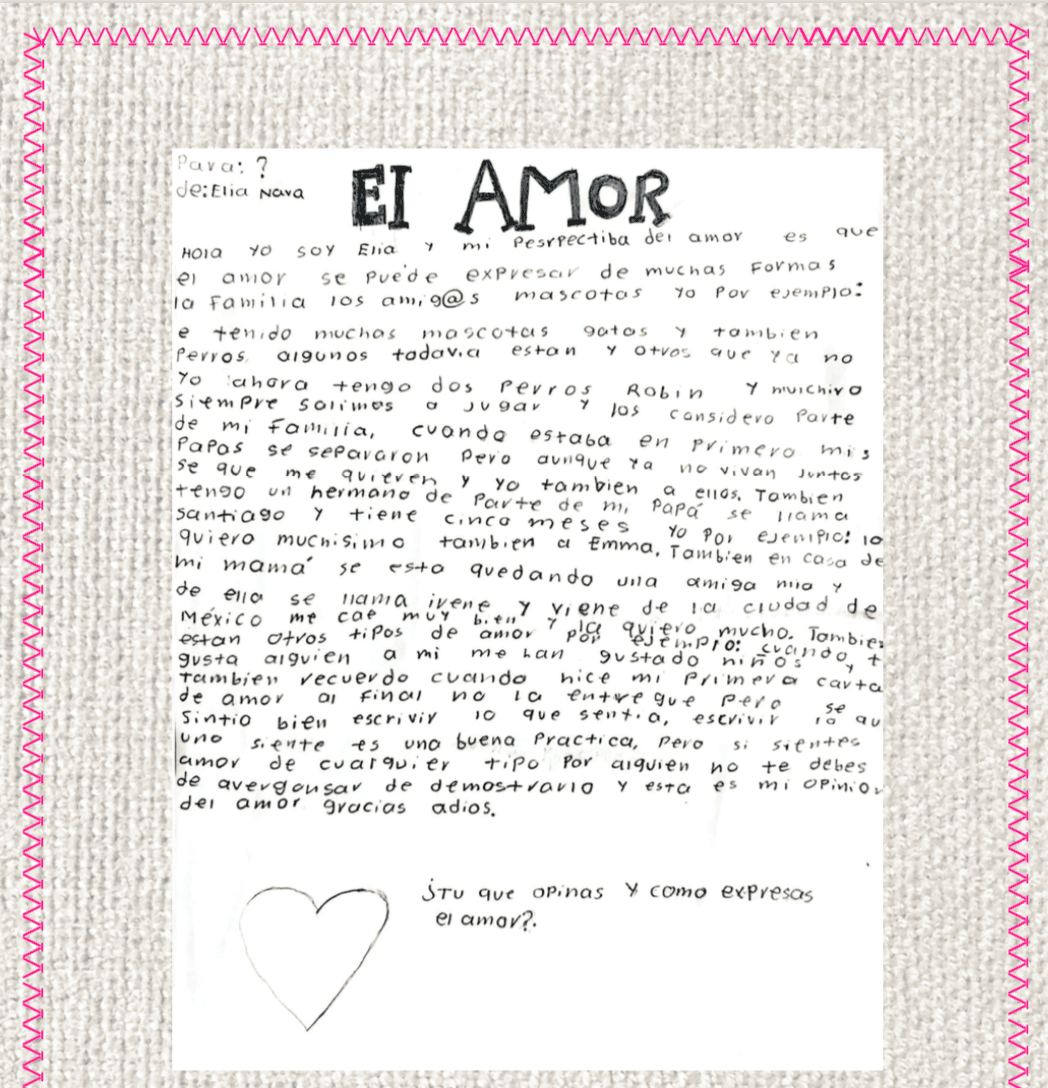 Para: ?
de: Elia Nava
El AMOR
Hola Yo soy Elia y mi Pesrpectiba del amor es que
el amor se puede expresar de muchas Formas
la Familia los amig@s mascotas Yo Por ejemplo:
e tenido muchas mascotas gatos y tambien
Perros, algunos todavia estan y otros que ya no
Yo ahora tengo dos Perros Robin y muichiro
siempre salimos a jugar y los considero Parte
de mi Familia, cuando estaba en primero mis
Papas se separaron pero aunque ya no vivan juntos
se que me quieren y yo tambien a ellos. Tambien
tengo un hermano de Parte de mi Papá se llama
santiago y tiene cinco meses Yo Por ejemplo: lo
quiero muchisimo tambien a Emma. Tambien en casa de
mi mamá se esta quedando una amiga mia y
de ella se llama irene y viene de la ciudad de
México me cae muy bien y la quiero mucho. Tambien
estan otros tipos de amor por ejemplo: cuando t
gusta alguien a mi me han gustado niños y
tambien recuerdo cuando hice mi Primera carta
de amor al Final no la entregue pero se
sintio bien escrivir lo que sentia, escrivir lo qu
uno siente es una buena Practica, Pero si sientes
amor de cualquier tipo Por alguien no te debes
de avergonsar de demostrarlo y esta es mi opinion
del amor gracias adios.
¿Tu que opinas y como expresas
el amor?.